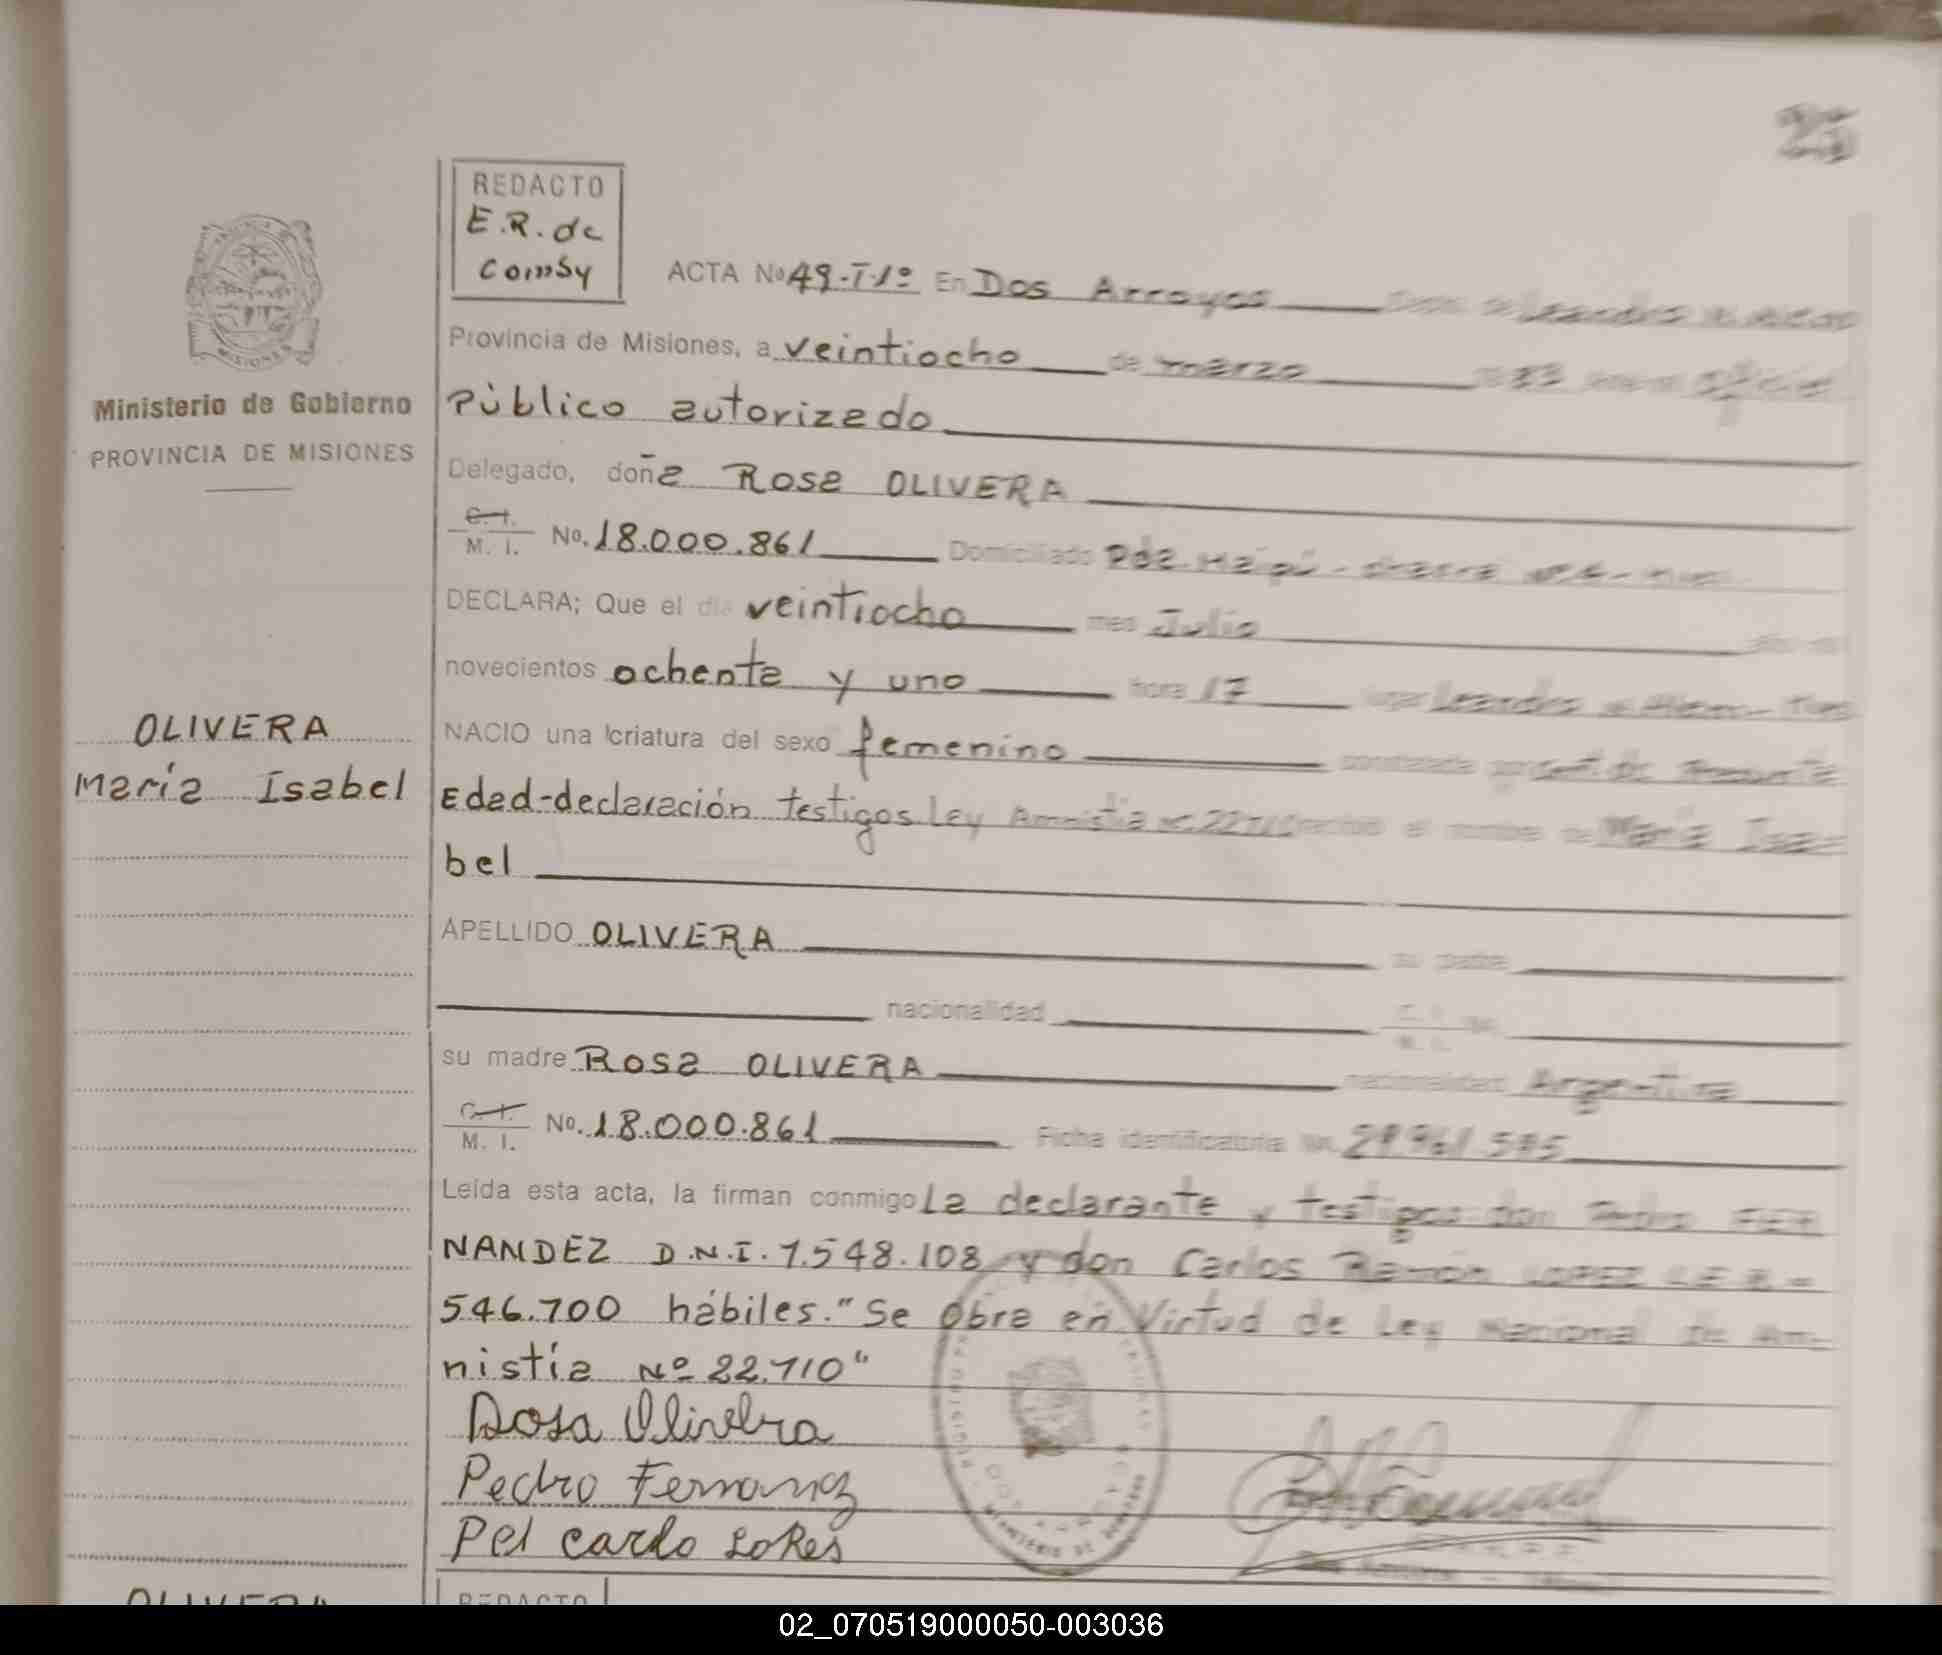 25
REDACTO
E.R. de
Comsy
MISIONES
Ministerio de Gobierno
PROVINCIA DE MISIONES
OLIVERA
María Isabel
ACTA No 49-T-1º En Dos Arroyos Leandro N. Alem
Provincia de Misiones, a veintiocho de marzo 83 Oficial
Público autorizado
Delegado, doña Rosa OLIVERA
C.I. M. I. No. 18.000.861 Domiciliado Pda. Maipú - chacra
DECLARA; Que el día veintiocho mes Julio
novecientos ochenta y uno hora 17 lugar Leandro N. Alem - Mnes
NACIO una criatura del sexo femenino constatada por Cert. de Presunta
Edad-declaración testigos Ley Amnistia Nº 22710 recibió el nombre de María Isa-
bel
APELLIDO OLIVERA su padre
nacionalidad C. I. M. I. No.
su madre Rosa OLIVERA nacionalidad Argentina
C.I. M. I. No. 18.000.861 Ficha identificatoria No.
Leída esta acta, la firman conmigo La declarante y testigos don Pedro FER
NANDEZ D.N.I. 7.548.108 y don Carlos Ramón LOPEZ L.E. 8-
546.700 hábiles. "Se Obra en Virtud de Ley Nacional de Am-
nistía Nº 22.710"
Rosa Olivera
Pedro Fernanez
Pel cardo Lopes
MINISTERIO DE GOBIERNO
OLIVERA
REDACTO
02_070519000050-003036